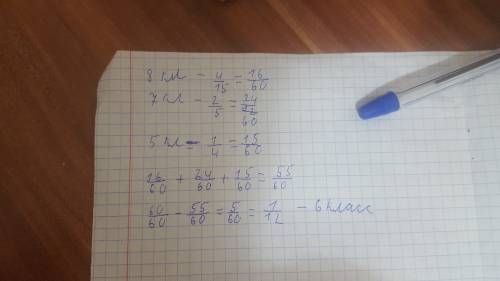 8 кл - 4/15 = 16/60
7 кл - 2/5 = 24/60
5 кл - 1/4 = 15/60
16/60 + 24/60 + 15/60 = 55/60
60/60 - 55/60 = 5/60 = 1/12 - 6 класс